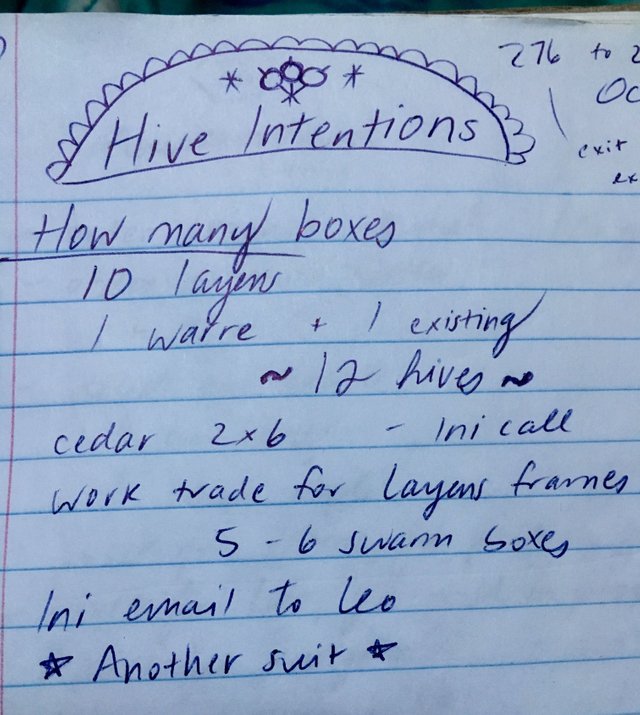 Hive Intentions
276 to
exit
How many boxes
10 layens
1 warre + 1 existing
~ 12 hives ~
cedar 2x6 - Ini call
work trade for Layens frames
5 - 6 swarm boxes
Ini email to Leo
* Another suit *